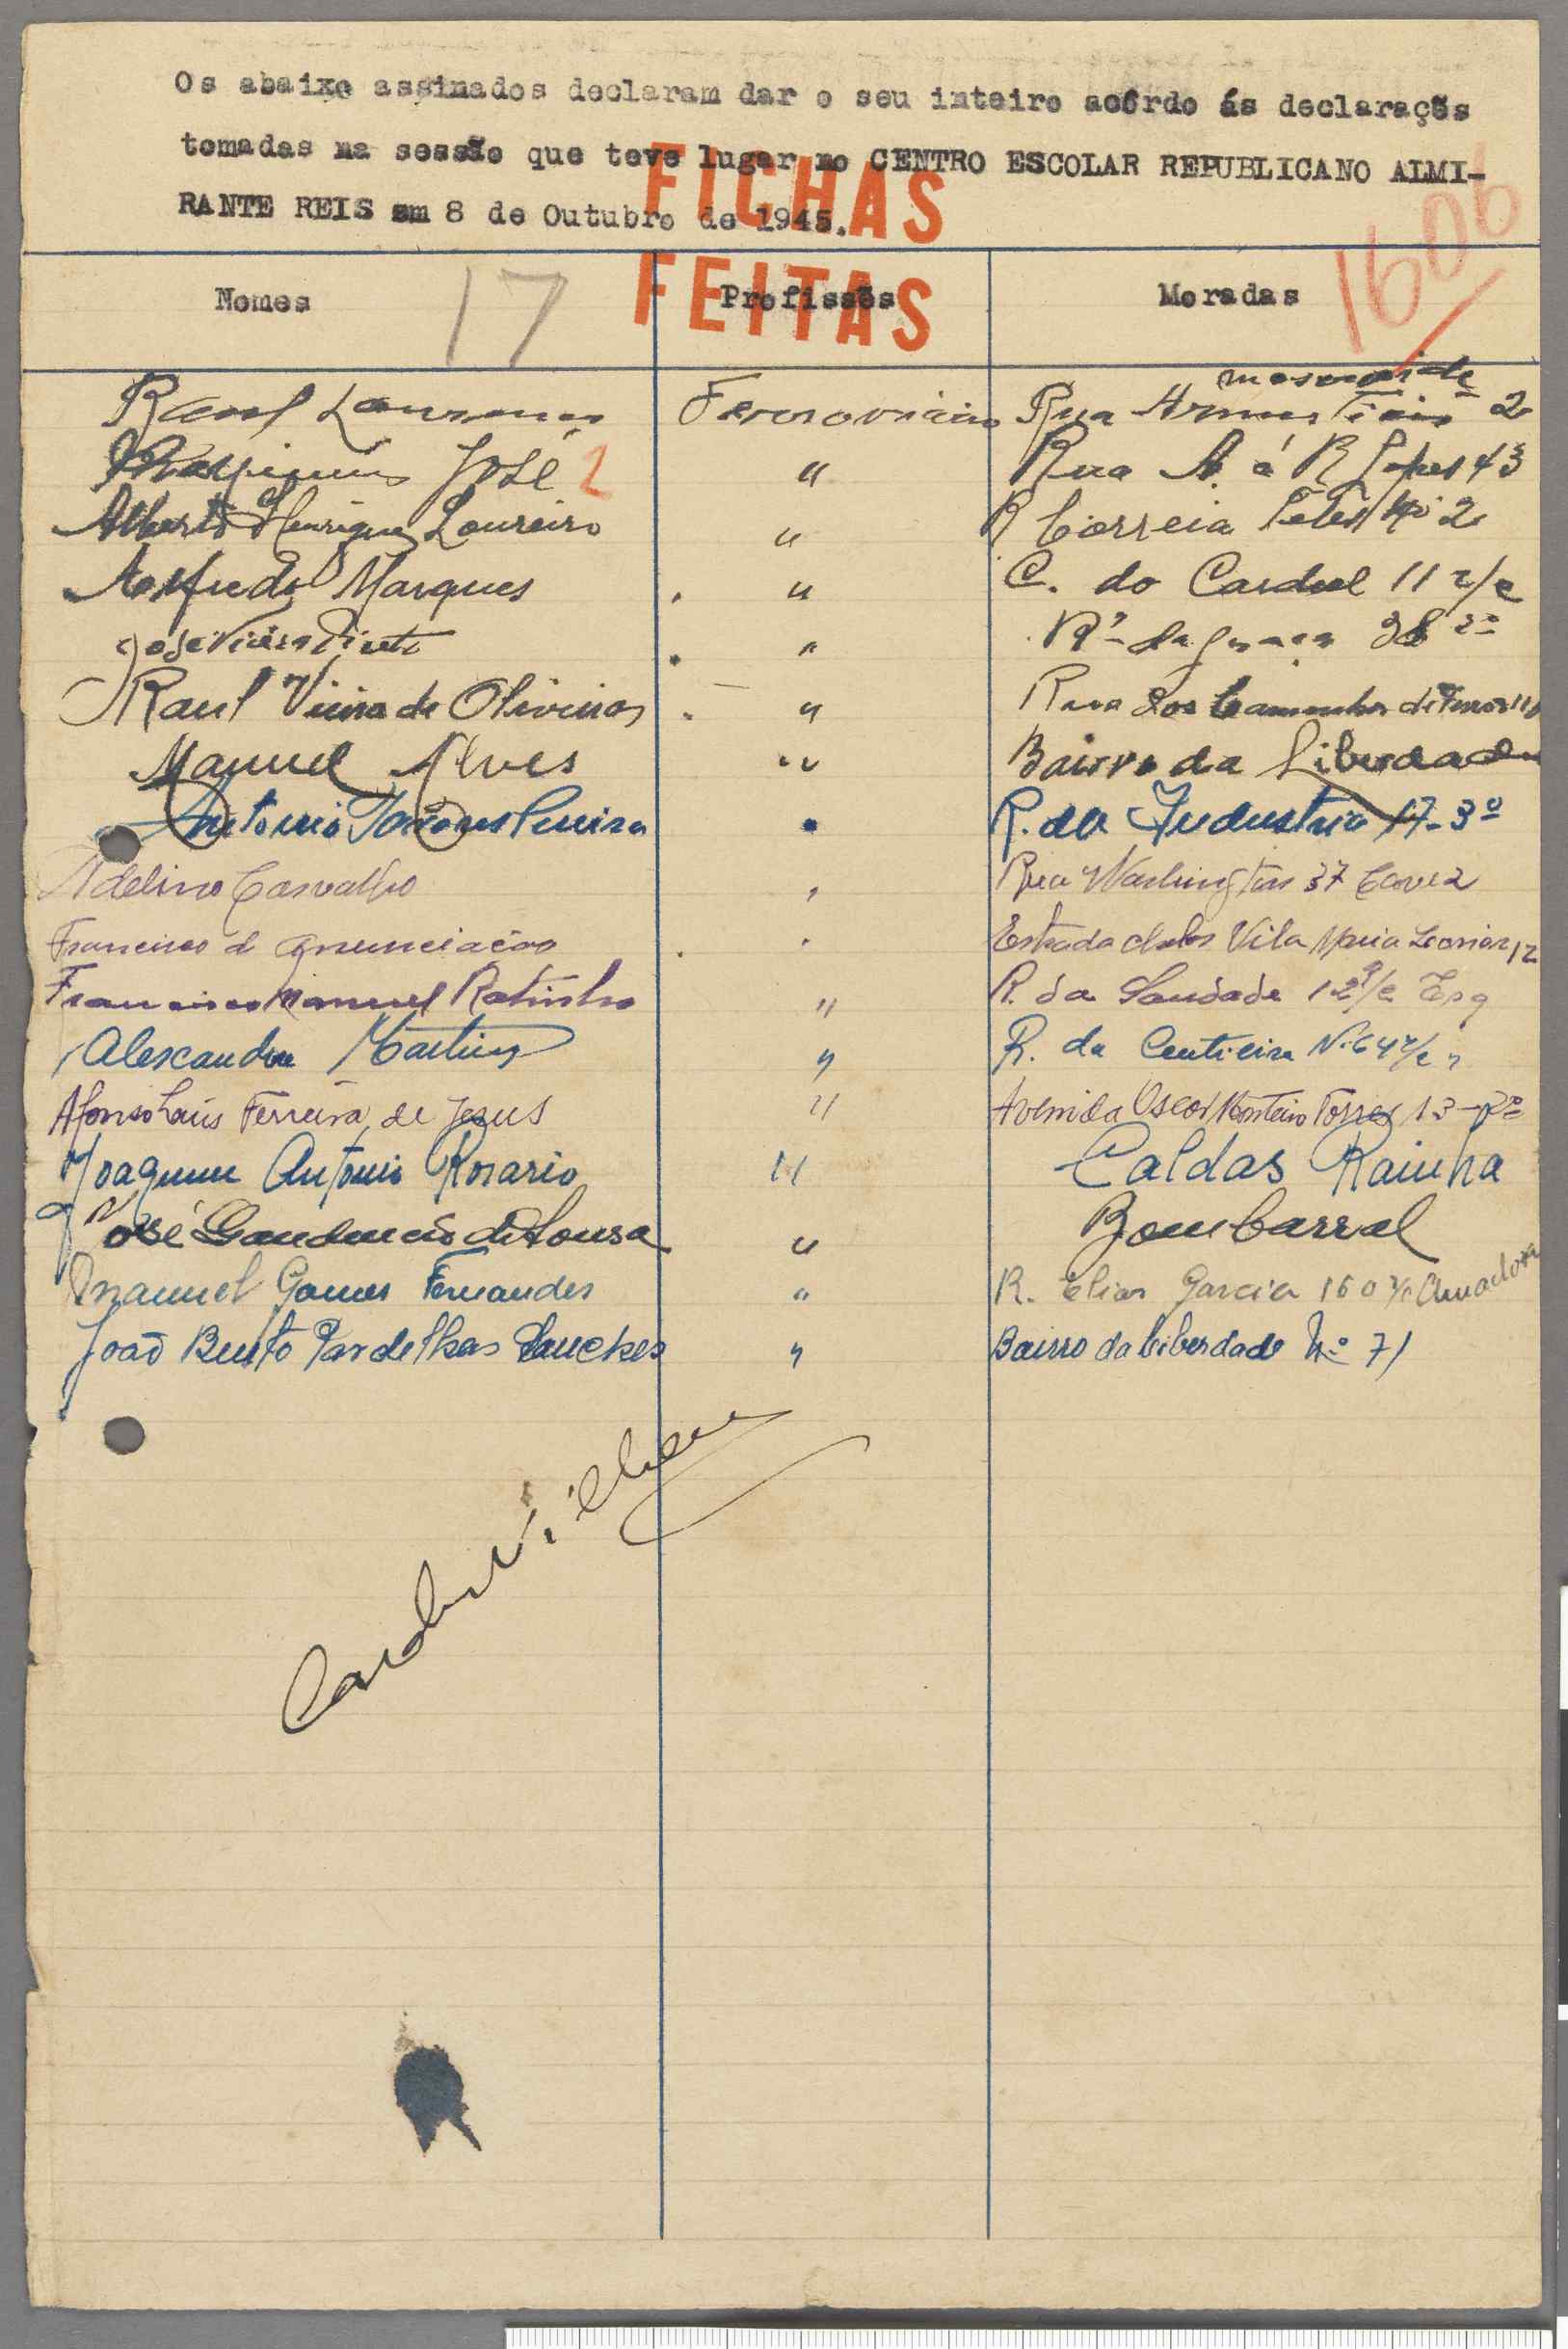 Os abaixo assinados declaram dar o seu inteiro acôrdo ás declaraçõs
tomadas na sessão que teve lugar no CENTRO ESCOLAR REPUBLICANO ALMI-
RANTE REIS em 8 de Outubro de 1945.
FICHAS
FEITAS
1606
Nomes 17 Profissõs Moradas
Raul Ferroviario Rua 2
José 2 " Rua A. á R Lopes 43
Alberto Henrique Loureiro " R Correia Teles Nº 2
Alfredo Marques " C. do Cardeal 11 r/c
José Vieira " Rª da Graça 38 2º
Raul Vieira de Oliveira " Rua dos Caminhos de Ferro
Manuel Alves " Bairro da Liberdade
Antonio Pereira " R. da Industria 17-3º
Adelino Carvalho " Rua Washington 37 Cave
Francisco d Anunciação " Estrada Vila Maria 12
Francisco Manuel Ratinho " R. da Saudade 12 r/c Esq
Alexandre Martins " R. da Centieira Nº 64 r/c
Afonso Luis Ferreira de Jesus " Avenida Oscar Monteiro Torres 13-2º
Joaquim Antonio Rosario " Caldas Rainha
José Gaudencio de Sousa " Bombarral
Manuel Gomes Fernandes " R. Elias Garcia 160 r/c Amadora
João Bento Pardelhas Sanches " Bairro da Liberdade Nº 71